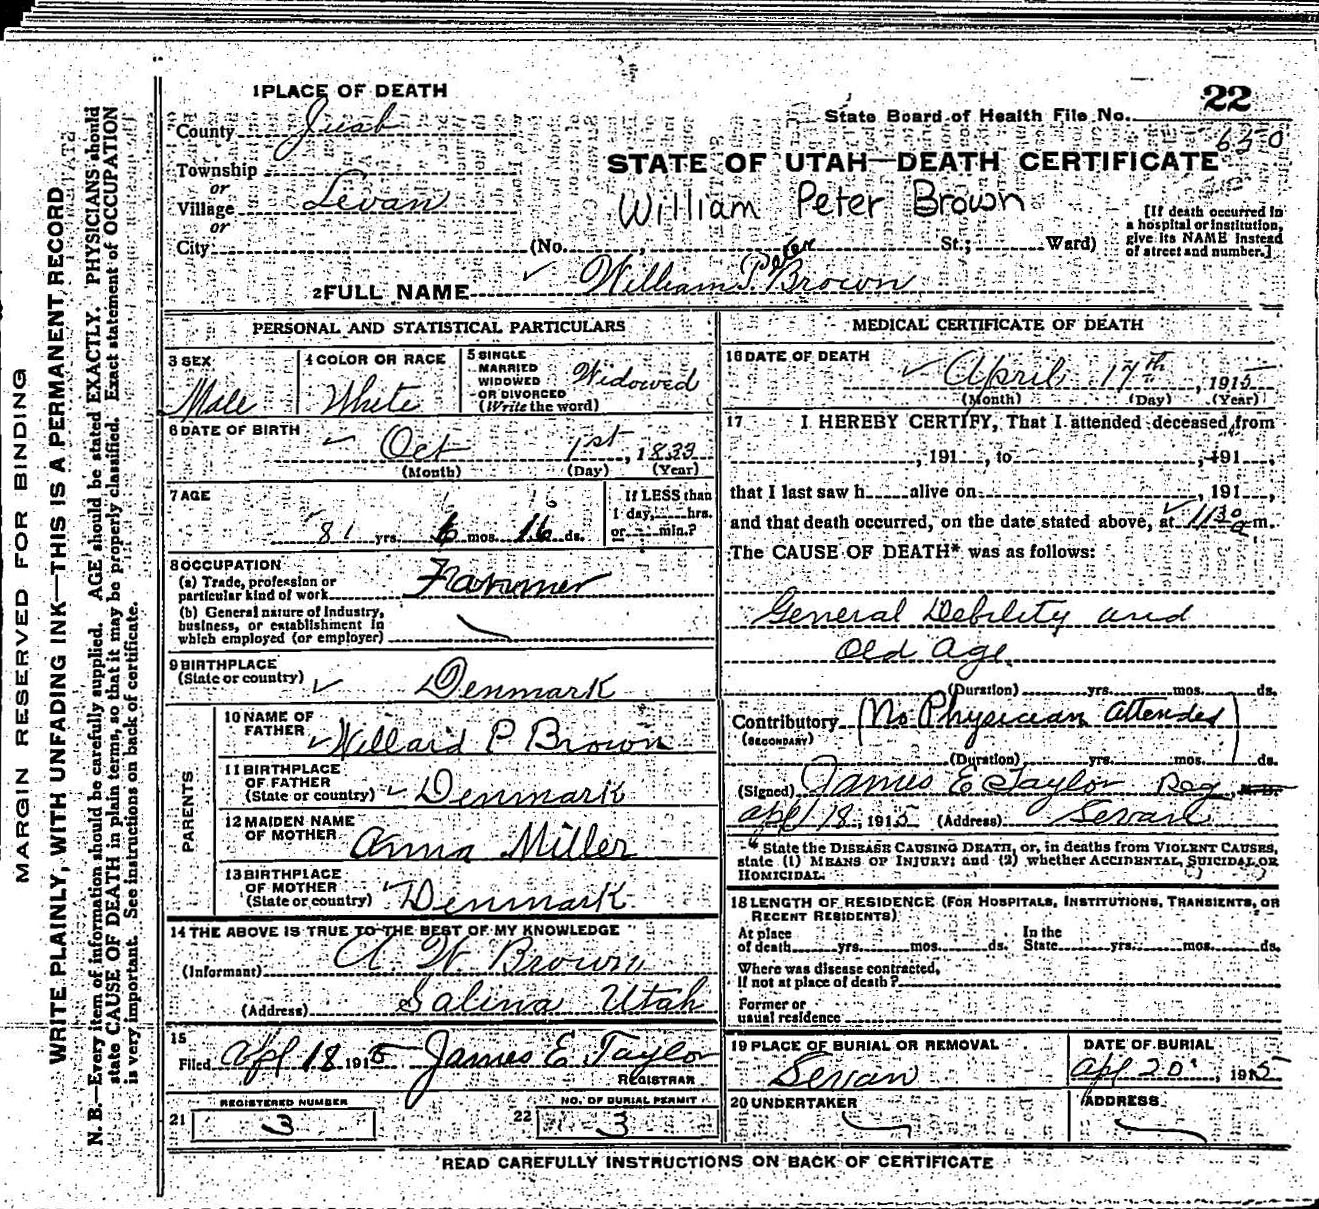 1 PLACE OF DEATH
22
State Board of Health File No.
650
County Juab
STATE OF UTAH—DEATH CERTIFICATE
Township
or
Village Levan
or
William Peter Brown
[If death occurred in
a hospital or institution,
give its NAME instead
of street and number.]
City (No. , St.; Ward)
Peter
2 FULL NAME William P. Brown
PERSONAL AND STATISTICAL PARTICULARS
3 SEX
Male
4 COLOR OR RACE
White
5 SINGLE
MARRIED
WIDOWED
OR DIVORCED
(Write the word)
Widowed
6 DATE OF BIRTH
Oct 1st, 1833
(Month) (Day) (Year)
7 AGE
6 16
81 yrs. 6 mos. 16 ds.
If LESS than
1 day, hrs.
or min.?
8 OCCUPATION
(a) Trade, profession or
particular kind of work Farmer
(b) General nature of Industry,
business, or establishment in
which employed (or employer)
9 BIRTHPLACE
(State or country) Denmark
PARENTS
10 NAME OF
FATHER Willard P Brown
11 BIRTHPLACE
OF FATHER
(State or country) Denmark
12 MAIDEN NAME
OF MOTHER Anna Miller
13 BIRTHPLACE
OF MOTHER
(State or country) Denmark
14 THE ABOVE IS TRUE TO THE BEST OF MY KNOWLEDGE
(Informant) A. W. Brown
(Address) Salina Utah
15
Filed Apl 18 1915 James E Taylor
REGISTRAR
21 REGISTERED NUMBER
3
22 NO. OF BURIAL PERMIT
3
MEDICAL CERTIFICATE OF DEATH
16 DATE OF DEATH
April 17th, 1915
(Month) (Day) (Year)
17 I HEREBY CERTIFY, That I attended deceased from
, 191 , to , 191 ,
that I last saw h alive on , 191 ,
and that death occurred, on the date stated above, at 1130 a m.
The CAUSE OF DEATH* was as follows:
General Debility and
Old Age
(Duration) yrs. mos. ds.
Contributory (No Physician Attended)
(SECONDARY)
(Duration) yrs. mos. ds.
(Signed) James E Taylor Reg, M.D.
Apl 18, 1915 (Address) Levan
* State the DISEASE CAUSING DEATH, or, in deaths from VIOLENT CAUSES,
state (1) MEANS OF INJURY; and (2) whether ACCIDENTAL, SUICIDAL OR
HOMICIDAL.
18 LENGTH OF RESIDENCE (FOR HOSPITALS, INSTITUTIONS, TRANSIENTS, OR
RECENT RESIDENTS)
At place
of death yrs. mos. ds.
In the
State yrs. mos. ds.
Where was disease contracted,
if not at place of death?
Former or
usual residence
19 PLACE OF BURIAL OR REMOVAL
Levan
DATE OF BURIAL
Apl 20, 1915
20 UNDERTAKER
ADDRESS
READ CAREFULLY INSTRUCTIONS ON BACK OF CERTIFICATE
MARGIN RESERVED FOR BINDING
WRITE PLAINLY, WITH UNFADING INK—THIS IS A PERMANENT RECORD
N. B.—Every item of information should be carefully supplied. AGE should be stated EXACTLY. PHYSICIANS should
state CAUSE OF DEATH in plain terms, so that it may be properly classified. Exact statement of OCCUPATION
is very important. See instructions on back of certificate.